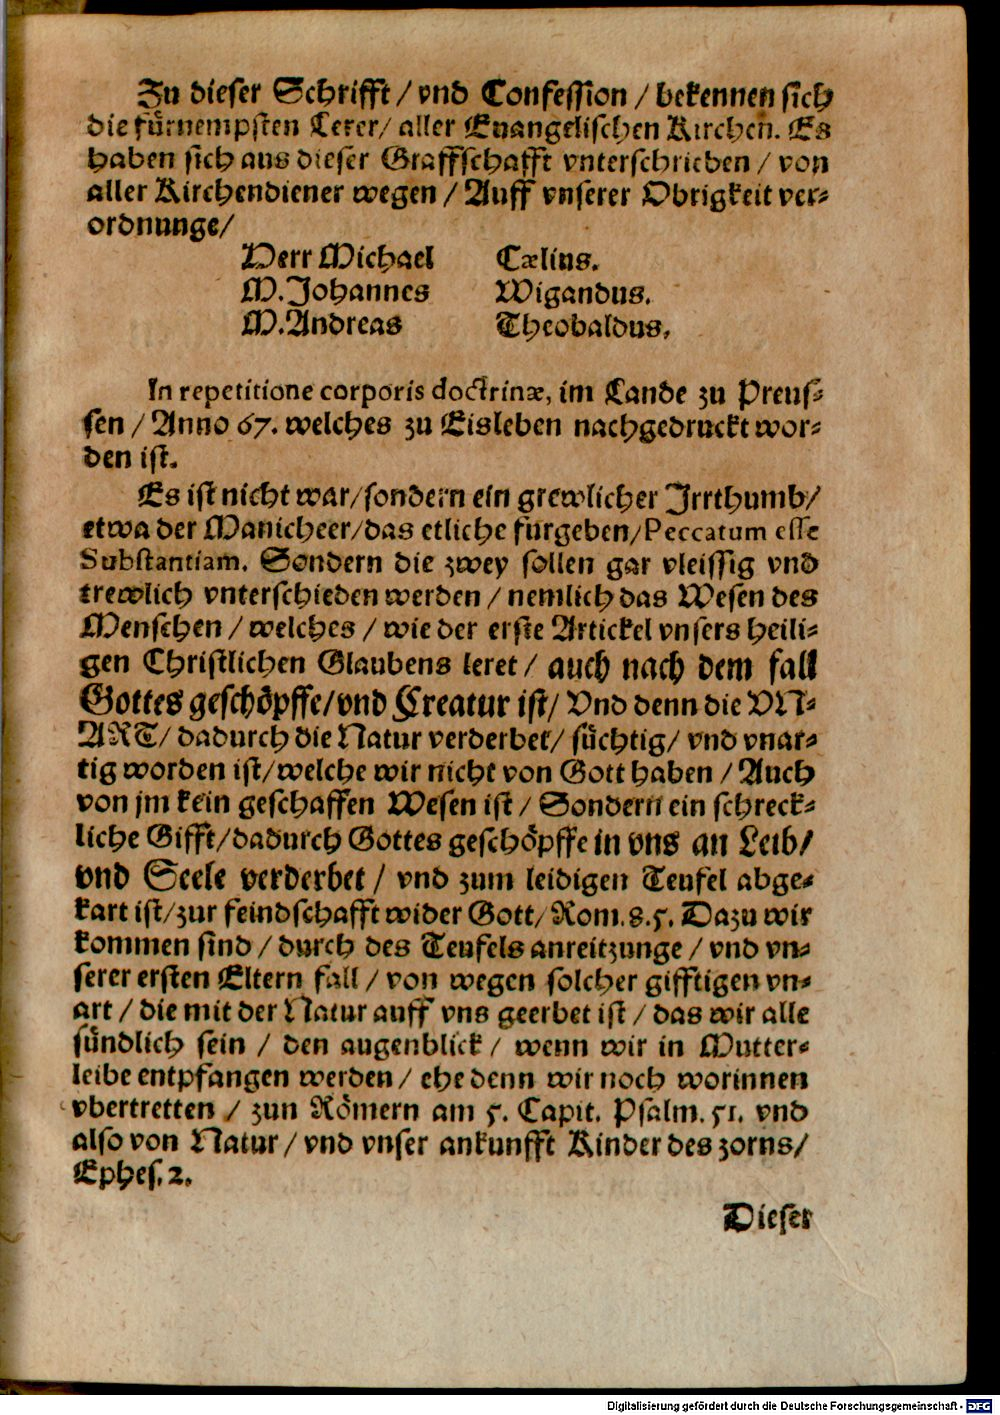 Zu dieser Schrifft / vnd Confession / bekennen sich
die fürnempsten Lerer / aller Euangelischen Kirchen. Es
haben sich aus dieser Graffschafft vnterschrieben / von
aller Kirchendiener wegen / Auff vnserer Obrigkeit ver-
ordnunge /
Herr Michael Cælius.
M. Johannes Wigandus.
M. Andreas Theobaldus.
In repetitione corporis doctrinæ, im Lande zu Preus-
sen / Anno 67. welches zu Eisleben nachgedruckt wor-
den ist.
Es ist nicht war / sondern ein grewlicher Jrrthumb /
etwa der Manicheer / das etliche furgeben / Peccatum esse
Substantiam. Sondern die zwey sollen gar vleissig vnd
trewlich vnterschieden werden / nemlich das Wesen des
Menschen / welches / wie der erste Artickel vnsers heili-
gen Christlichen Glaubens leret / auch nach dem fall
Gottes geschöpffe / vnd Creatur ist / Vnd denn die VN-
ART / dadurch die Natur verderbet / süchtig / vnd vnar-
tig worden ist / welche wir nicht von Gott haben / Auch
von jm kein geschaffen Wesen ist / Sondern ein schreck-
liche Gifft / dadurch Gottes geschöpffe in vns an Leib /
vnd Seele verderbet / vnd zum leidigen Teufel abge-
kart ist / zur feindschafft wider Gott / Rom. 8. 5. Dazu wir
kommen sind / durch des Teufels anreitzunge / vnd vn-
serer ersten Eltern fall / von wegen solcher gifftigen vn-
art / die mit der Natur auff vns geerbet ist / das wir alle
sündlich sein / den augenblick / wenn wir in Mutter-
leibe entpfangen werden / ehe denn wir noch worinnen
vbertretten / zun Römern am 5. Capit. Psalm. 51. vnd
also von Natur / vnd vnser ankunfft Kinder des zorns /
Ephes. 2.
Dieser
Digitalisierung gefördert durch die Deutsche Forschungsgemeinschaft - DFG